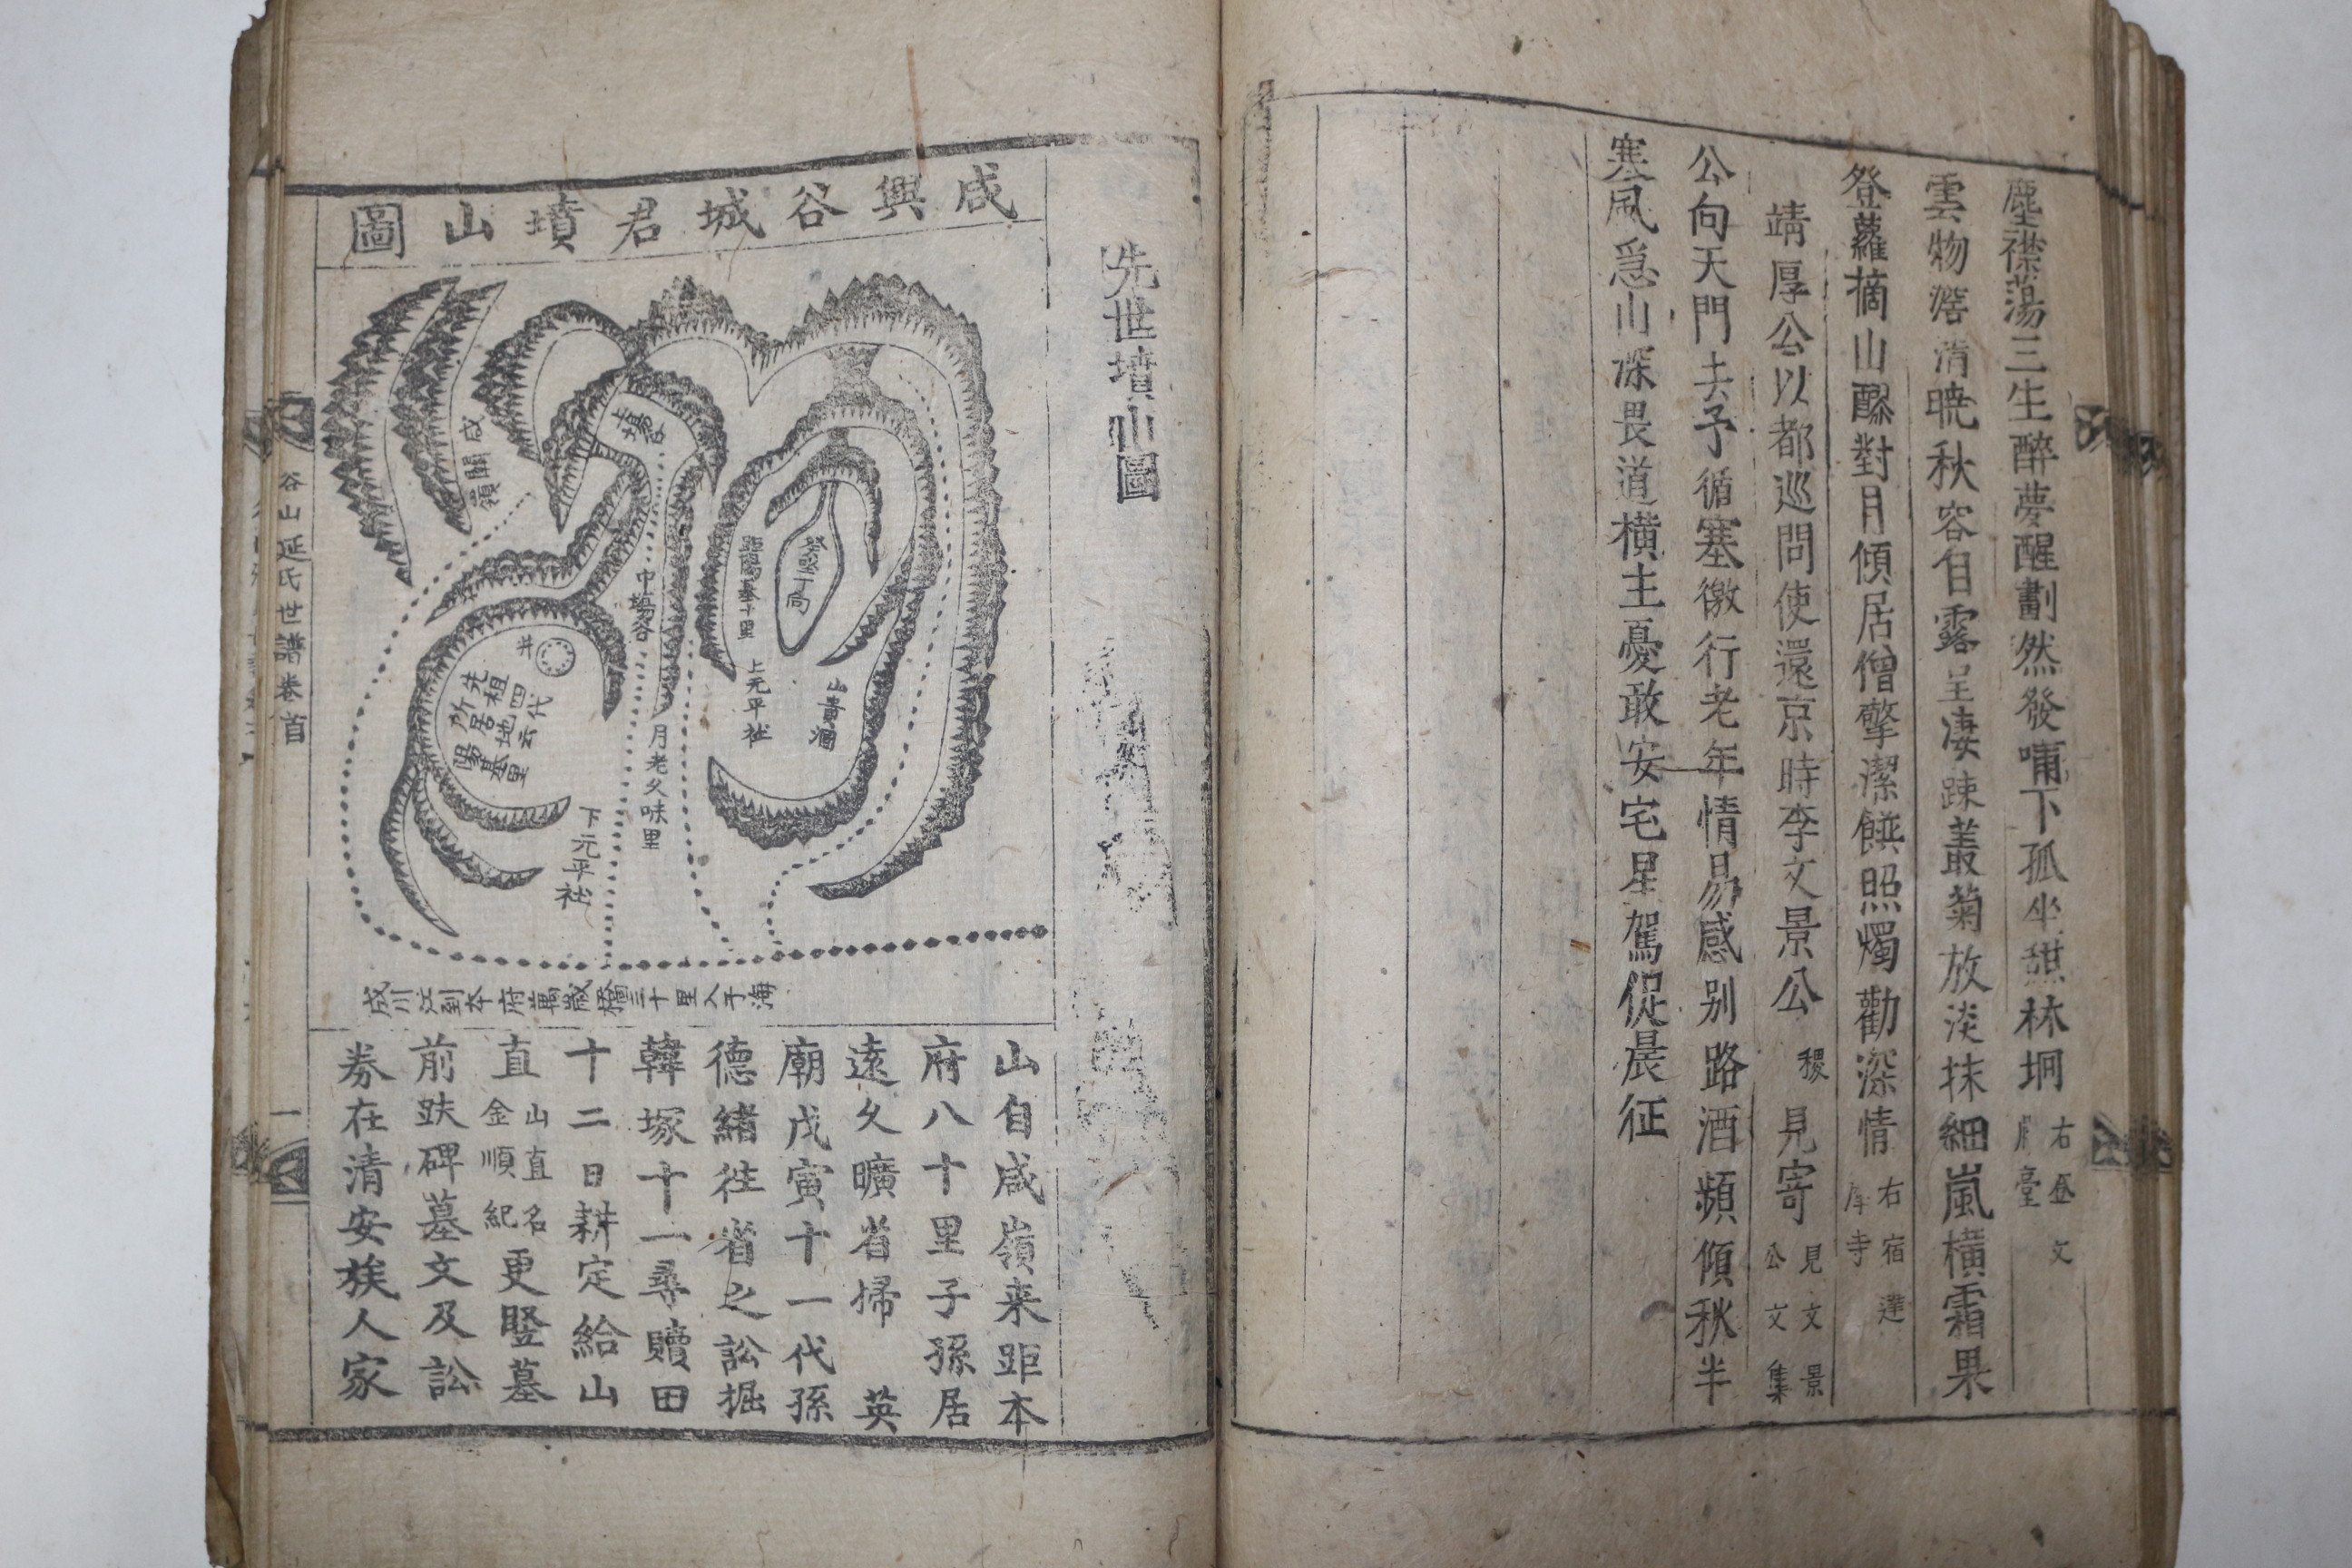 塵襟蕩三生醉夢醒劃然發嘯下孤坐甜林坰 右登文
臺
雲物澄清曉秋容自露呈凄疎叢菊放淡抹細嵐橫霜果
登蘿摘山醪對月傾居僧擎潔饌照燭勸深情 右宿達
寺
靖厚公以都巡問使還京時李文景公 稷 見寄 見文景
公文集
公向天門去予循塞徼行老年情易感别路酒頻傾秋半
塞風急山深畏道橫主憂敢安宅星駕促晨征
先世墳山圖
咸興谷城君墳山圖
咸關嶺
中塲谷
癸坐丁向
距舊基十里
上元平社
井
先祖四代
所居地云
陽基里
月老夂味里
下元平社
成川江到本府萬歲橋三十里入于海
山自咸嶺来距本
府八十里子孫居
遠久曠省掃 英
廟戊寅十一代孫
德緒徃省之訟掘
韓塚十一尋贖田
十二日耕定給山
直 山直名
金順紀 更竪墓
前趺碑墓文及訟
券在清安族人家
谷山延氏世譜卷首
一